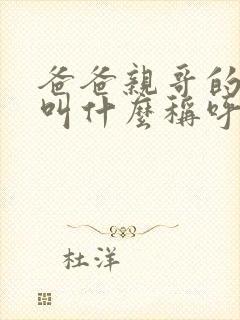 爸爸親哥的
叫什麼稱呼
杜洋